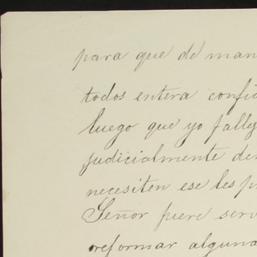 para que de man
todos entera confi
luego que yo falle
judicialmente de
necesiten ese les p
Señor fuere serv
reformar alguna